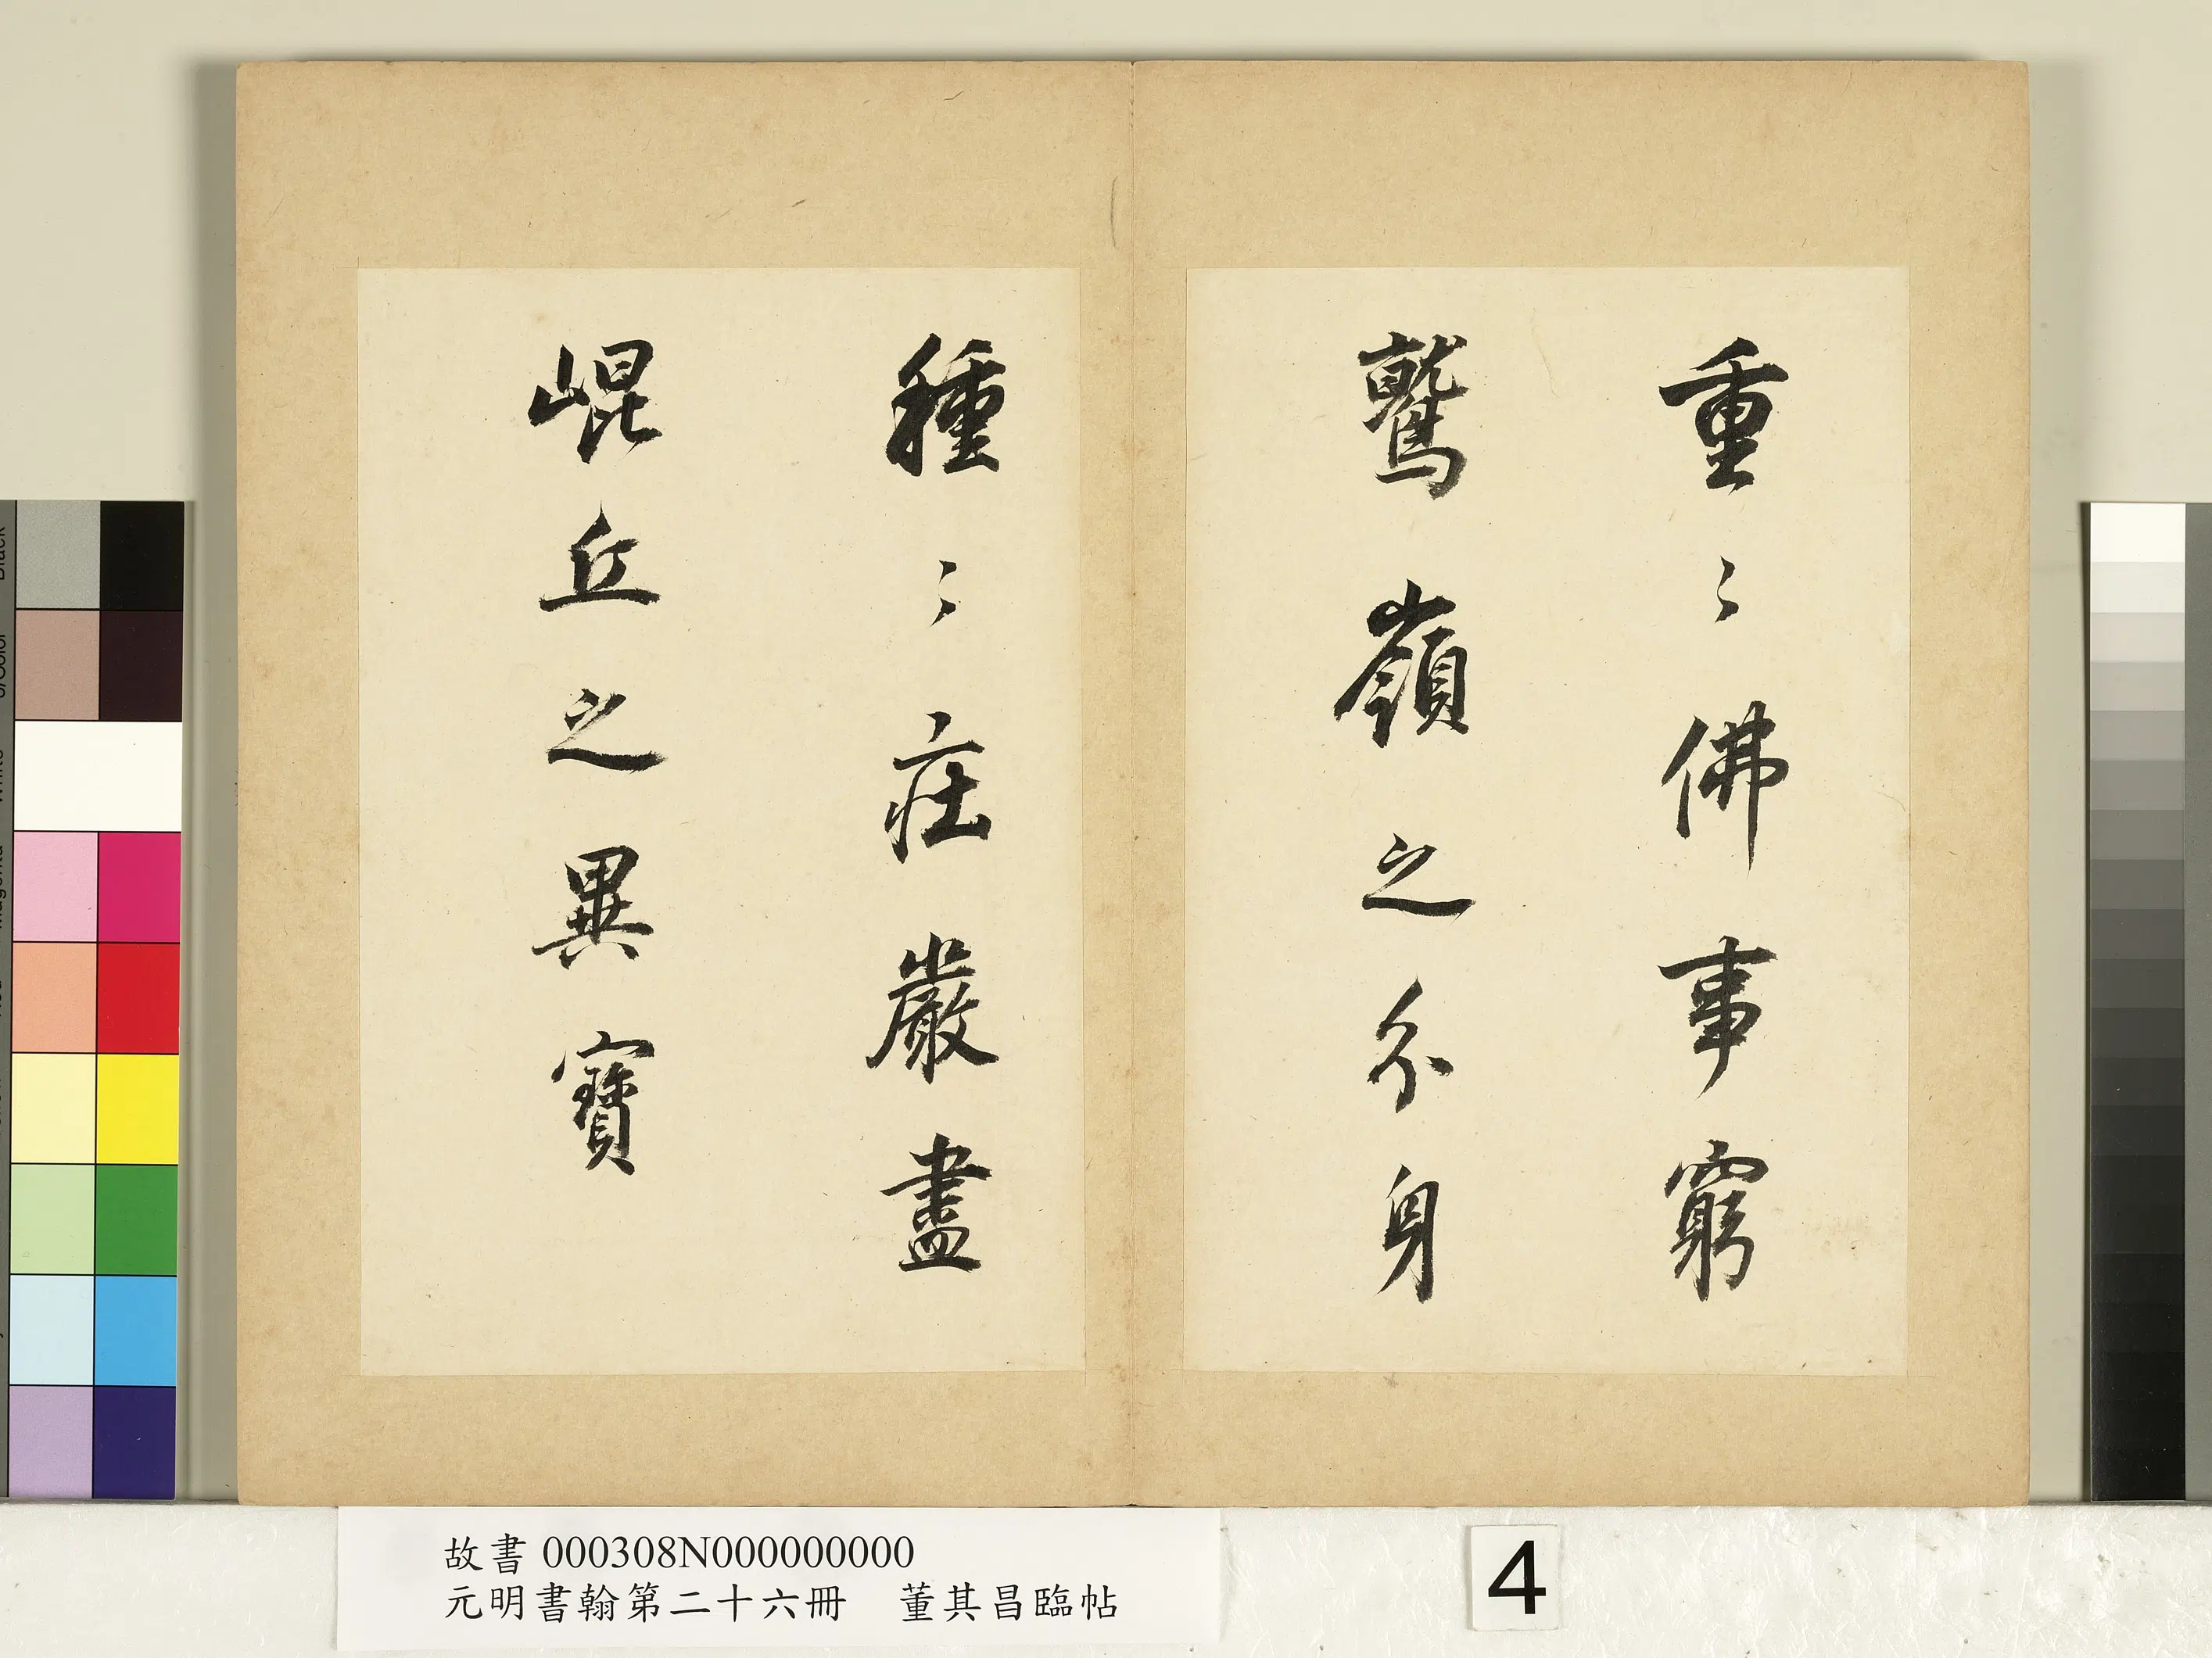 重〻佛事窮
鷲嶺之分身
種〻莊嚴盡
崐丘之異寶
故書 000308N000000000
元明書翰第二十六冊 董其昌臨帖
4